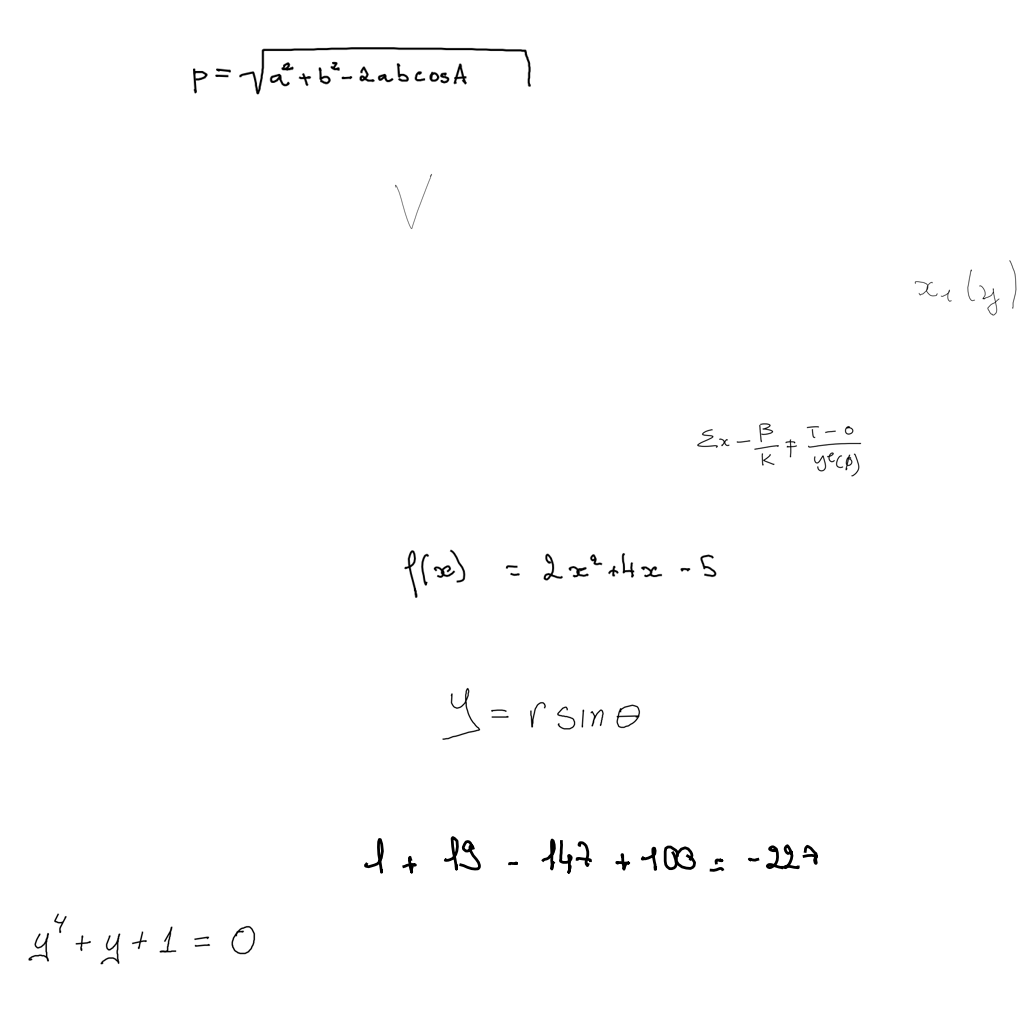 p = √(a² + b² - 2abcosA)
V
x₁(y)
Σx - β/K ≠ (T - 0)/(yᵉ(φ))
f(x) = 2x² + 4x - 5
y = r sin θ
1 + 19 - 147 + 100 = -227
y⁴ + y + 1 = 0